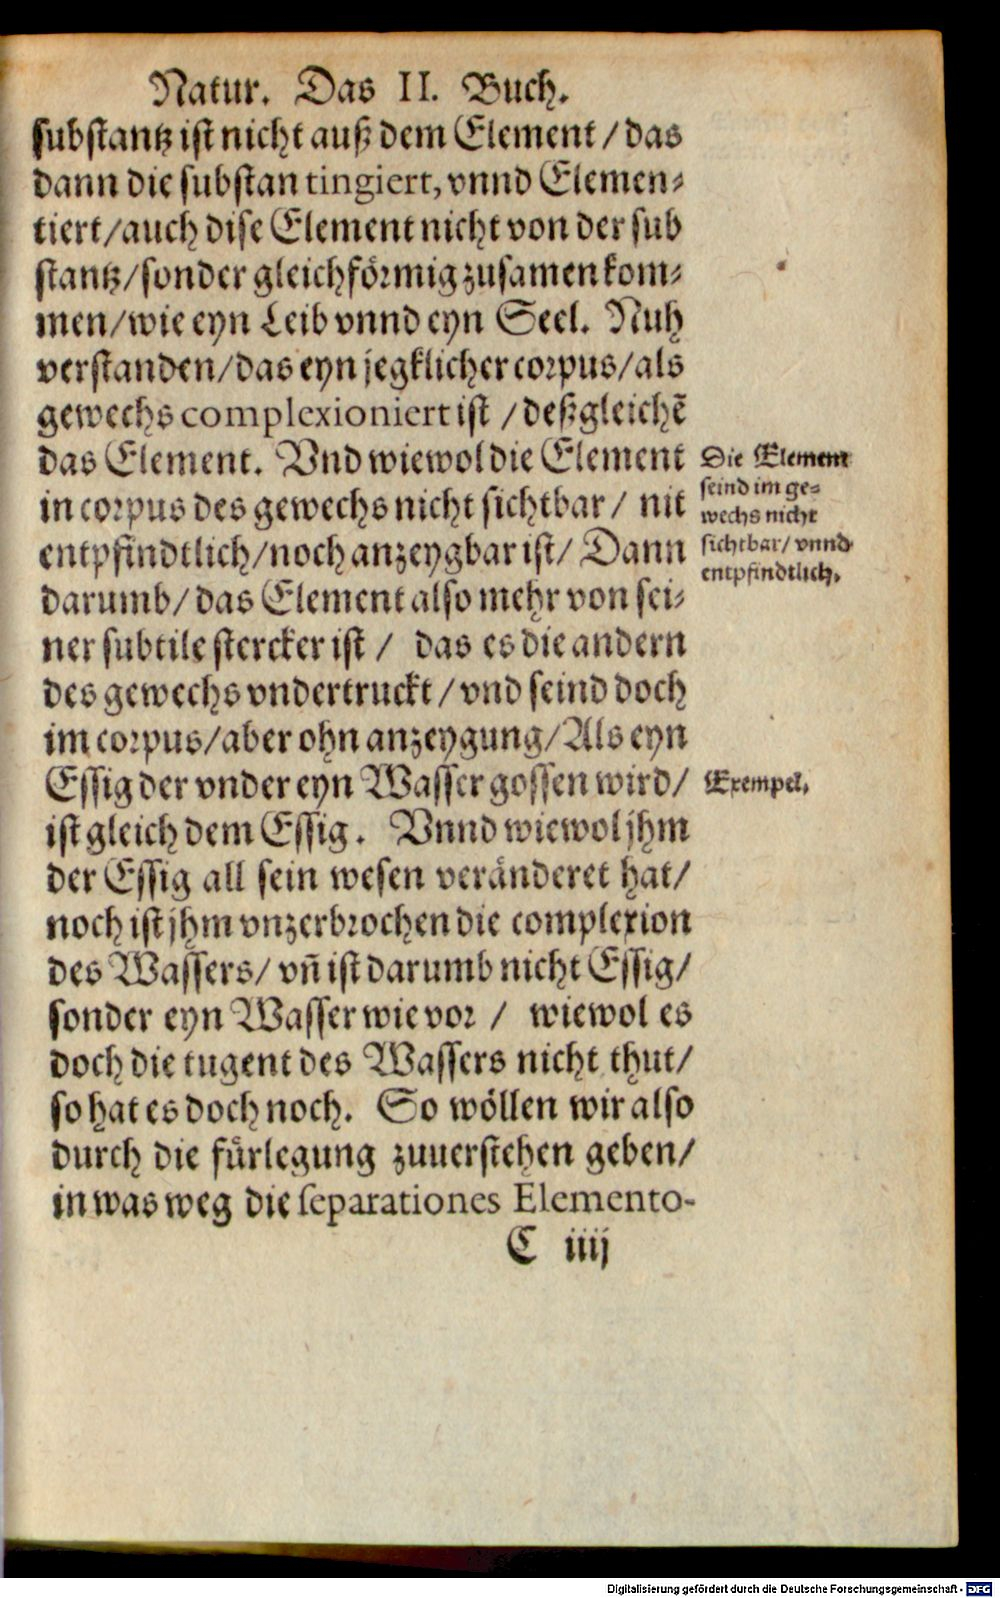 Natur. Das II. Buch.
substantz ist nicht auß dem Element / das
dann die substan tingiert, vnnd Elemen⸗
tiert/auch dise Element nicht von der sub
stantz/sonder gleichförmig zusamen kom⸗
men/wie eyn Leib vnnd eyn Seel. Nuh
verstanden/das eyn jegklicher corpus/als
gewechs complexioniert ist /deßgleichē
das Element. Vnd wiewol die Element
in corpus des gewechs nicht sichtbar/ nit
entpfindtlich/noch anzeygbar ist/ Dann
darumb/das Element also mehr von sei⸗
ner subtile stercker ist / das es die andern
des gewechs vndertruckt/vnd seind doch
im corpus/aber ohn anzeygung/Als eyn
Essig der vnder eyn Wasser gossen wird/
ist gleich dem Essig. Vnnd wiewol jhm
der Essig all sein wesen veränderet hat/
noch ist jhm vnzerbrochen die complexion
des Wassers/ vñ ist darumb nicht Essig/
sonder eyn Wasser wie vor / wiewol es
doch die tugent des Wassers nicht thut/
so hat es doch noch. So wöllen wir also
durch die fürlegung zuuerstehen geben/
in was weg die separationes Elemento-
C iiij
Die Element
seind im ge⸗
wechs nicht
sichtbar/ vnnd
entpfindtlich.
Exempel.
Digitalisierung gefördert durch die Deutsche Forschungsgemeinschaft - DFG